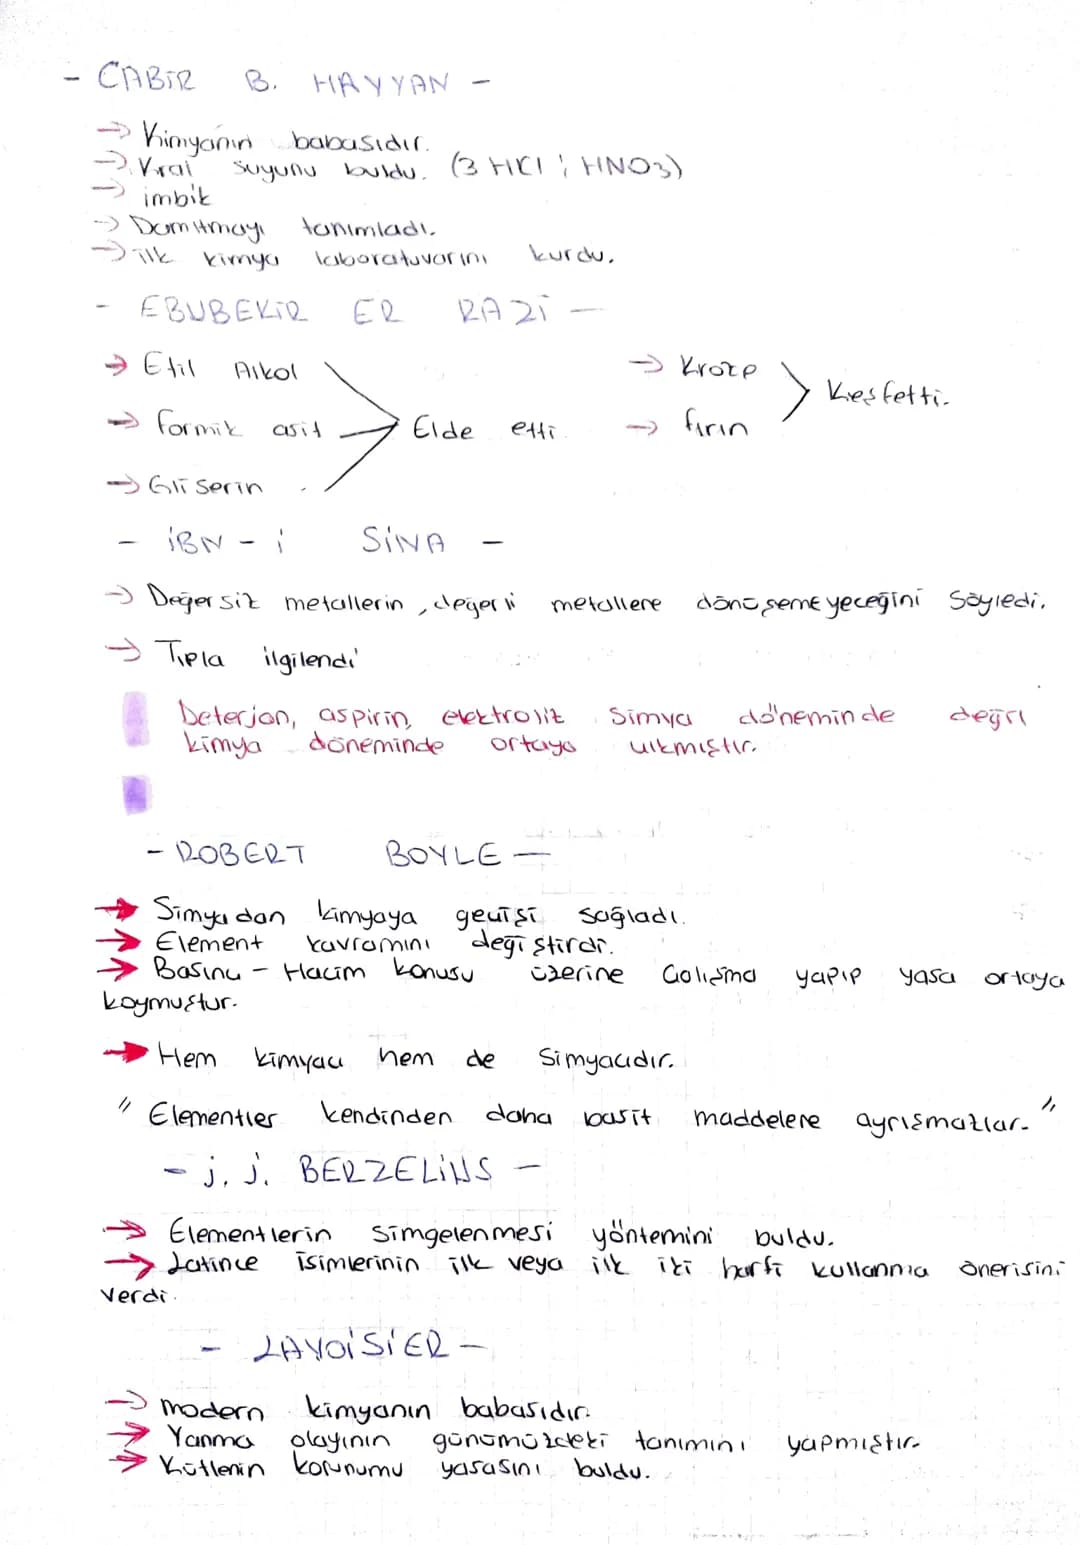 - CABİR B. HAYYAN -
→ Kimyanın babasıdır.
→ Kral suyunu buldu. (3 HCl ; HNO3)
→ imbik
→ Damıtmayı tanımladı.
→ ilk kimya laboratuvarını kurdu.
- EBUBEKİR ER RAZİ -
→ Etil Alkol
→ Formik asit
→ Gliserin
Elde etti
→ Kroze
→ fırın
Keşfetti.
- İBN - i SİNA -
→ Değersiz metallerin, değerli metallere dönüşemeyeceğini Söyledi.
→ Tıpla ilgilendi
Deterjan, aspirin, elektroliz Simya döneminde değil
kimya döneminde ortaya çıkmıştır.
- ROBERT BOYLE -
→ Simyadan kimyaya geçişi sağladı.
→ Element kavramını değiştirdi.
→ Basınç - Hacim konusu üzerine çalışma yapıp yasa ortaya
koymuştur.
→ Hem kimyacı hem de Simyacıdır.
" Elementler kendinden daha basit maddelere ayrışmazlar. "
- j. j. BERZELİUS -
→ Elementlerin simgelenmesi yöntemini buldu.
→ Latince isimlerinin ilk veya ilk iki harfi kullanma önerisini
verdi.
- LAVOİSİER -
→ modern kimyanın babasıdır.
→ Yanma olayının günümüzdeki tanımını yapmıştır.
→ Kütlenin korunumu yasasını buldu.